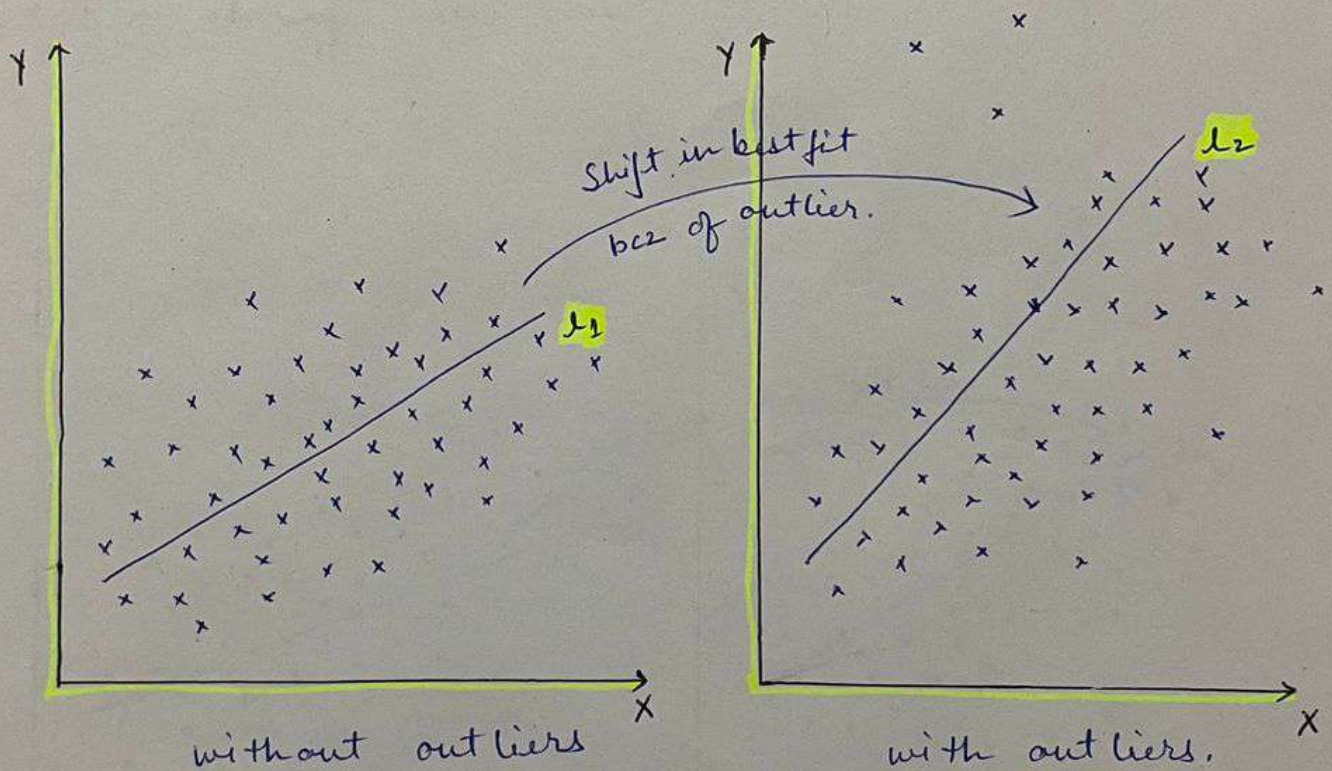 Y
l1
X
without outliers
Shift in best fit
bcz of outlier.
Y
l2
X
with outliers.